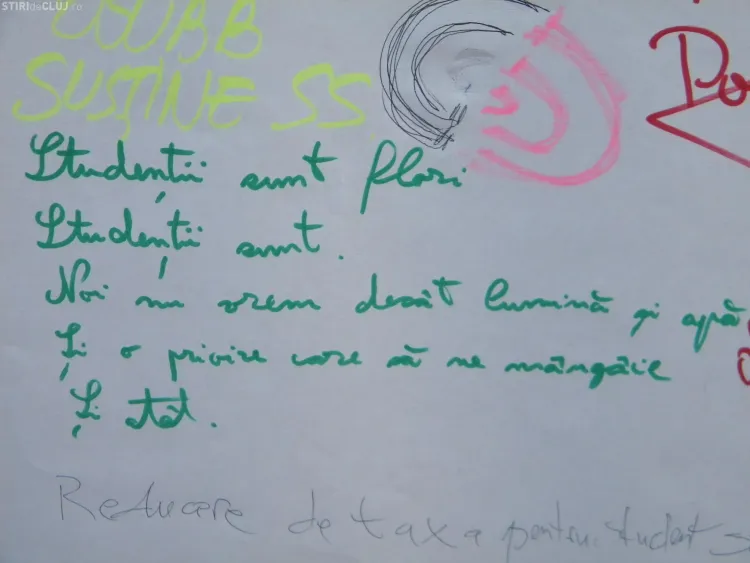 STIRIdeCLUJ.ro
SUSȚINE SS
Po
Studenții sunt flori
Studenții sunt.
Noi nu vrem decât lumină și apă
Și o privire care să ne mângâie
Și atât.
Reducere de taxa pentru student